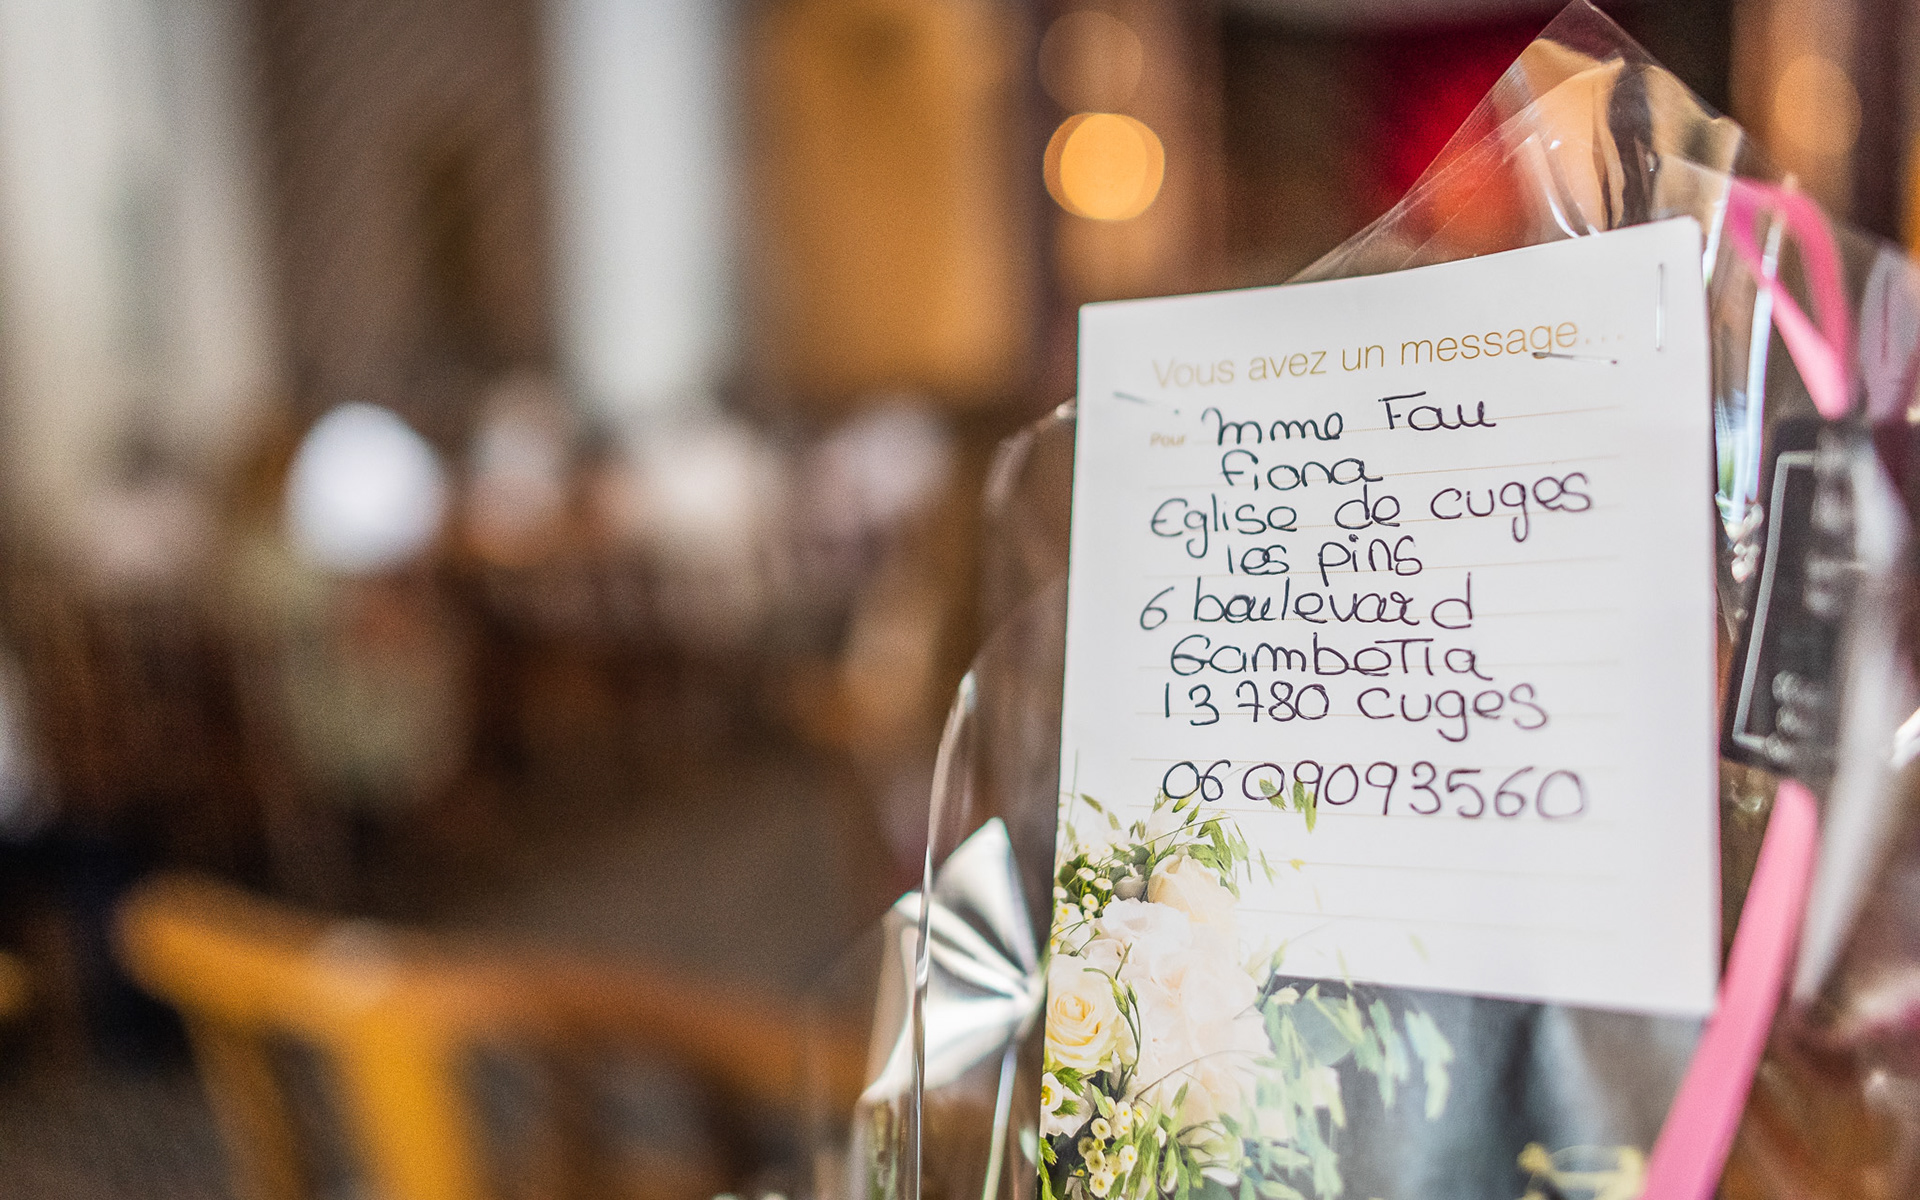 Vous avez un message...
Pour Mme Fau
Fiona
Eglise de cuges
les pins
6 boulevard
Gambetta
13780 cuges
0609093560